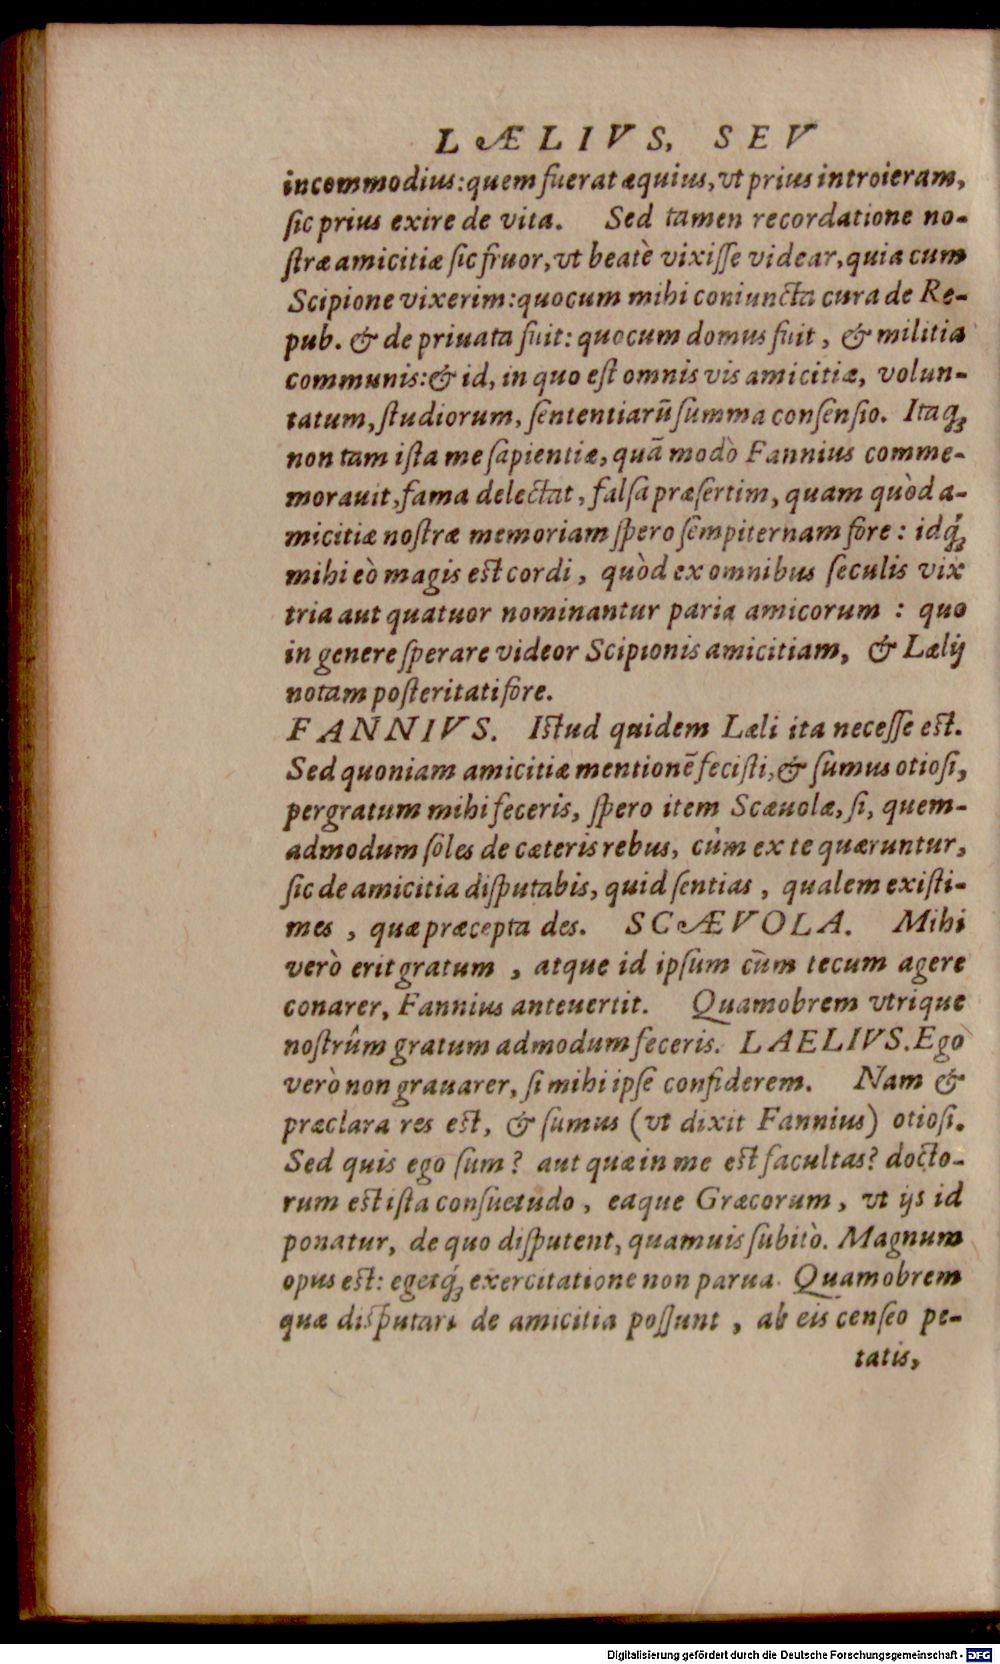 LÆLIVS, SEV
incommodius: quem fuerat æquius, vt prius introieram,
ſic prius exire de vita. Sed tamen recordatione no-
ſtræ amicitiæ ſic fruor, vt beatè vixiſſe videar, quia cum
Scipione vixerim: quocum mihi coniuncta cura de Re-
pub. & de priuata fuit: quocum domus fuit, & militia
communis: & id, in quo eſt omnis vis amicitiæ, volun-
tatum, ſtudiorum, ſententiarũ ſumma conſenſio. Itaq́;
non tam iſta me ſapientiæ, quã modò Fannius comme-
morauit, fama delectat, falſa præſertim, quam quòd a-
micitiæ noſtræ memoriam ſpero ſempiternam fore: idq́;
mihi eò magis eſt cordi, quòd ex omnibus ſeculis vix
tria aut quatuor nominantur paria amicorum: quo
in genere ſperare videor Scipionis amicitiam, & Lælij
notam poſteritati fore.
FANNIVS. Iſtud quidem Læli ita neceſſe eſt.
Sed quoniam amicitiæ mentionẽ feciſti, & ſumus otioſi,
pergratum mihi feceris, ſpero item Scæuolæ, ſi, quem-
admodum ſoles de cæteris rebus, cùm ex te quæruntur,
ſic de amicitia diſputabis, quid ſentias, qualem exiſti-
mes, quæ præcepta des. SCÆVOLA. Mihi
verò erit gratum, atque id ipſum cùm tecum agere
conarer, Fannius anteuertit. Quamobrem vtrique
noſtrûm gratum admodum feceris. LAELIVS. Ego
verò non grauarer, ſi mihi ipſe confiderem. Nam &
præclara res eſt, & ſumus (vt dixit Fannius) otioſi.
Sed quis ego ſum? aut quæ in me eſt facultas? docto-
rum eſt iſta conſuetudo, eaque Græcorum, vt ijs id
ponatur, de quo diſputent, quamuis ſubitò. Magnum
opus eſt: egetq́; exercitatione non parua. Quamobrem
quæ diſputari de amicitia poſſunt, ab eis cenſeo pe-
tatis,
Digitalisierung gefördert durch die Deutsche Forschungsgemeinschaft - DFG